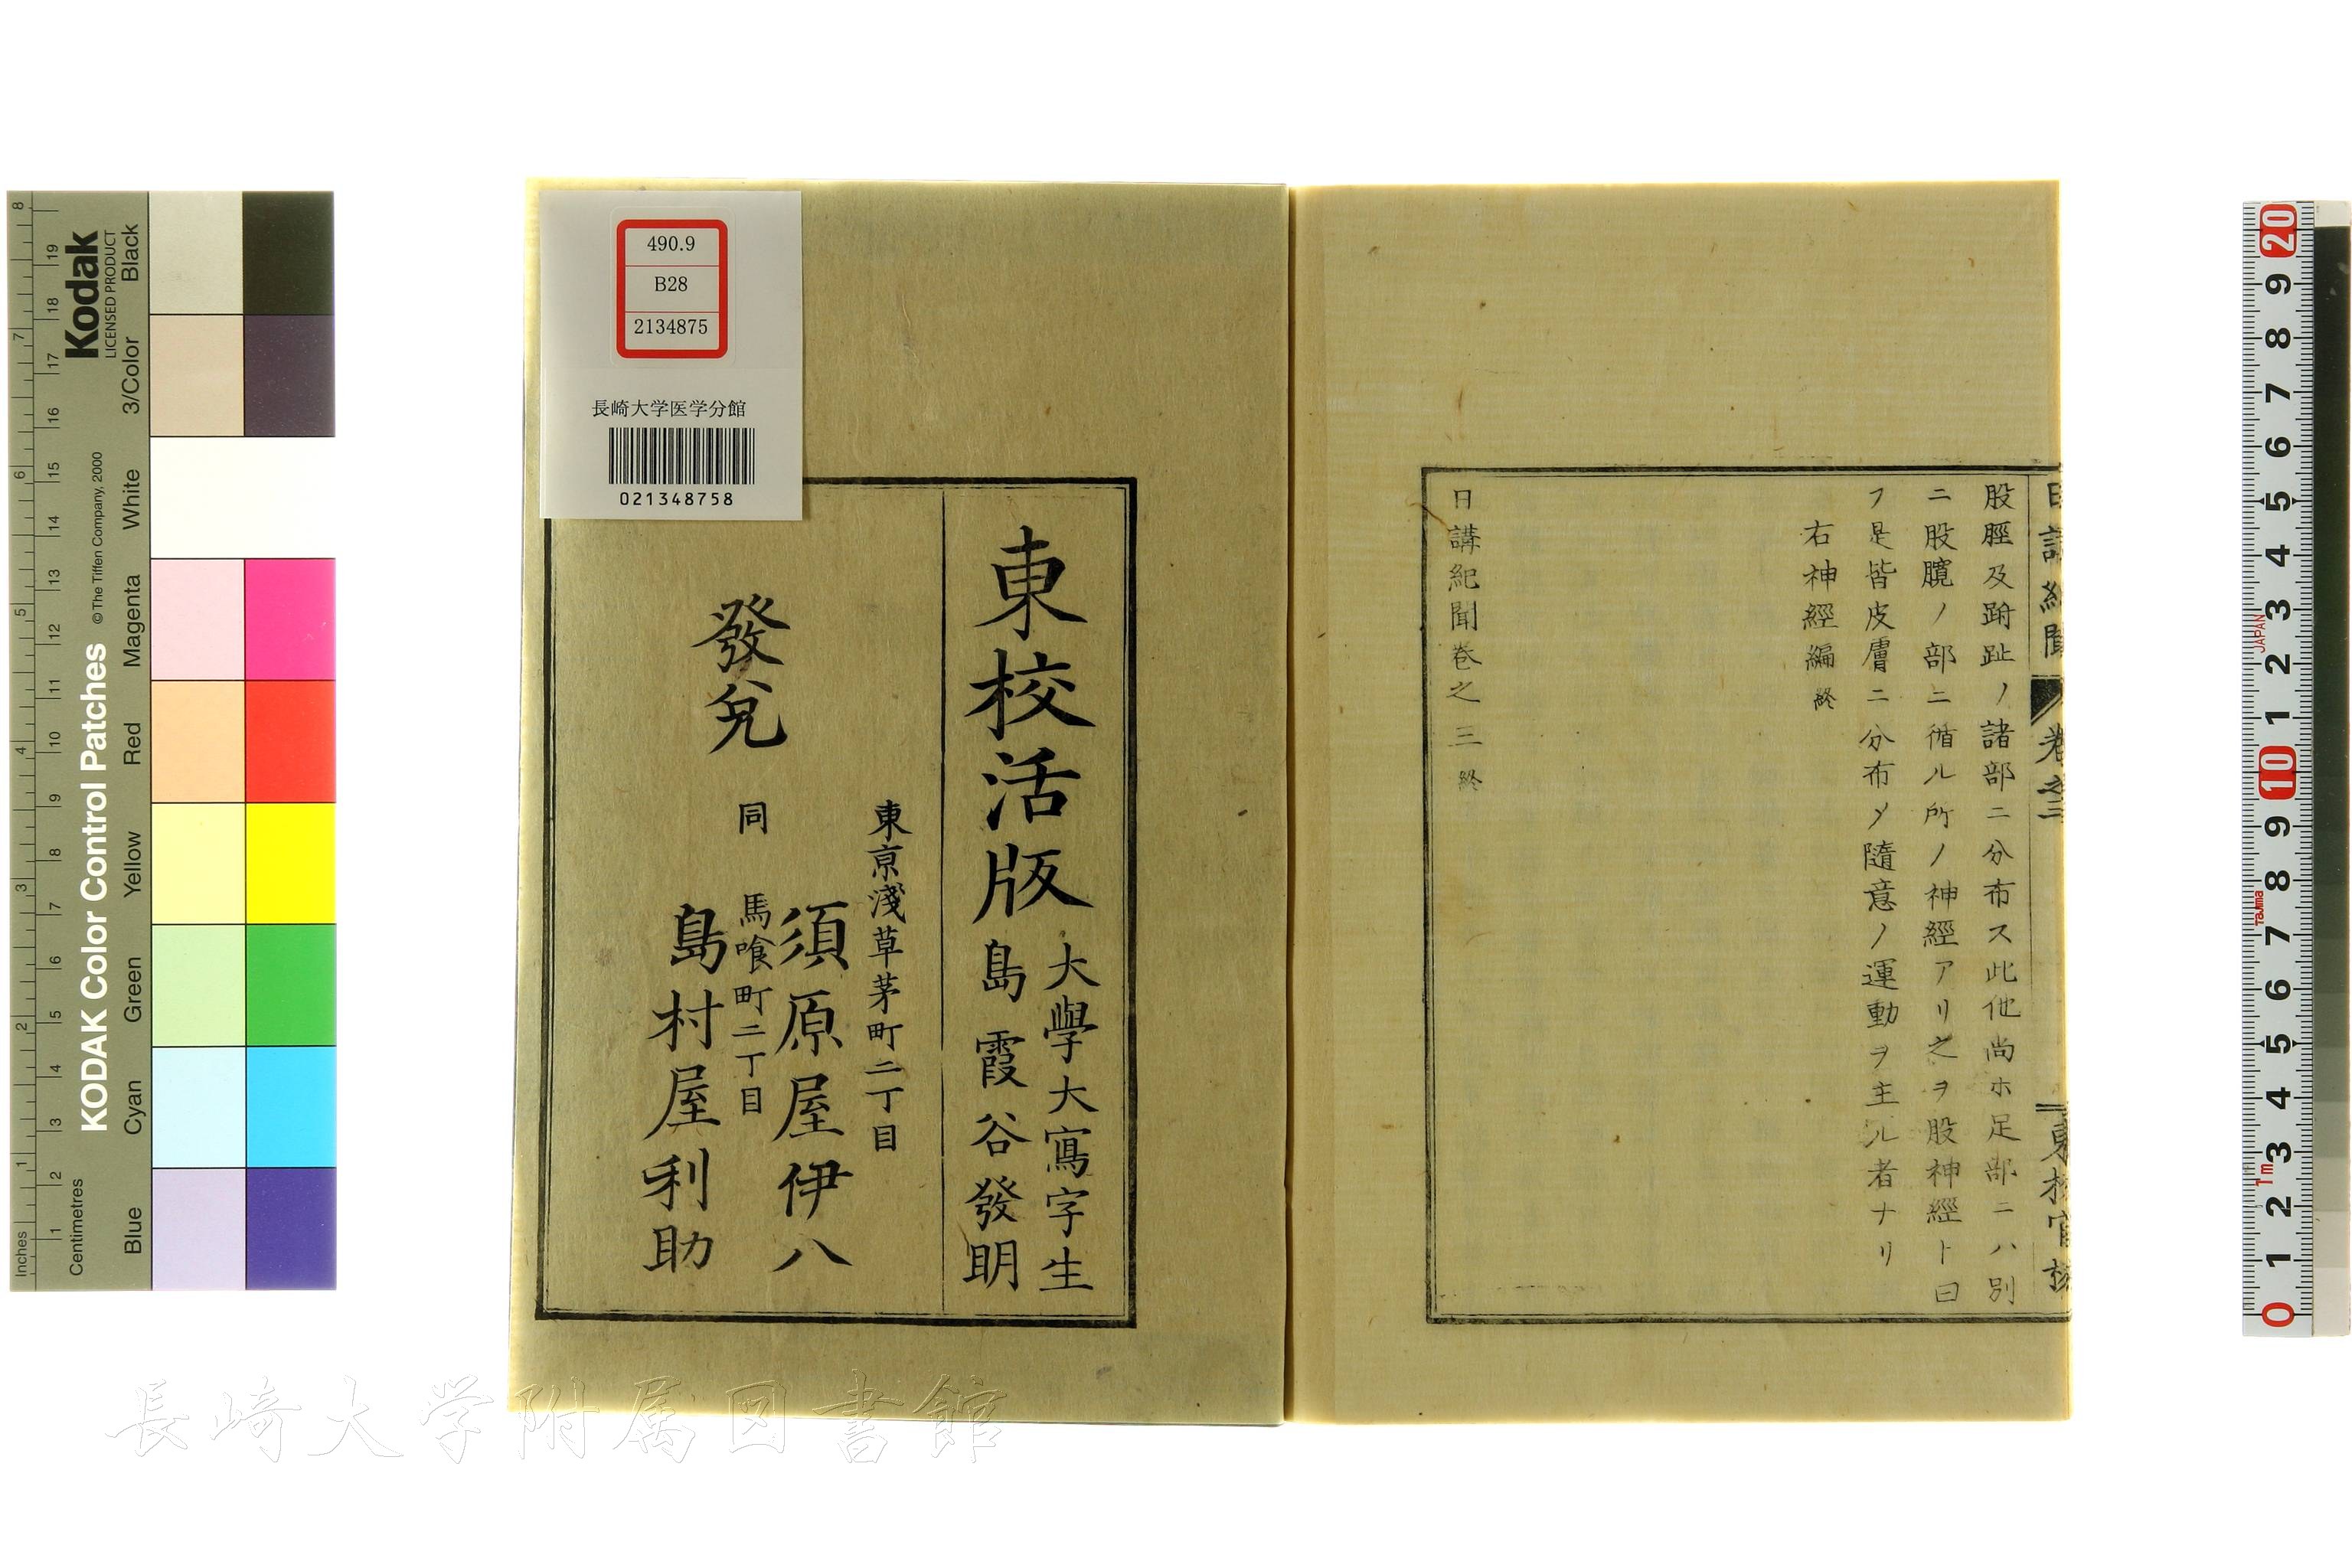 股脛及跗趾ノ諸部ニ分布ス此他尚ホ足部ニハ別
ニ股臗ノ部ニ循ル所ノ神經アリ之ヲ股神經ト曰
フ是皆皮膚ニ分布〆隨意ノ運動ヲ主ル者ナリ
右神經編終
日講紀聞卷之三終
東校活版
大學大寫字生
島霞谷發明
東京淺草茅町二丁目
須原屋伊八
同 馬喰町二丁目
島村屋利助
發兌
490.9
B28
2134875
長崎大学医学分館
021348758
長崎大学附属図書館
Kodak
LICENSED PRODUCT
KODAK Color Control Patches
©The Tiffen Company, 2000
Inches
Centimetres
1 2 3 4 5 6 7 8
1 2 3 4 5 6 7 8 9 10 11 12 13 14 15 16 17 18 19
Blue
Cyan
Green
Yellow
Red
Magenta
White
3/Color
Black
0 1 2 3 4 5 6 7 8 9 10 1 2 3 4 5 6 7 8 9 20
1m
Tajima
JAPAN